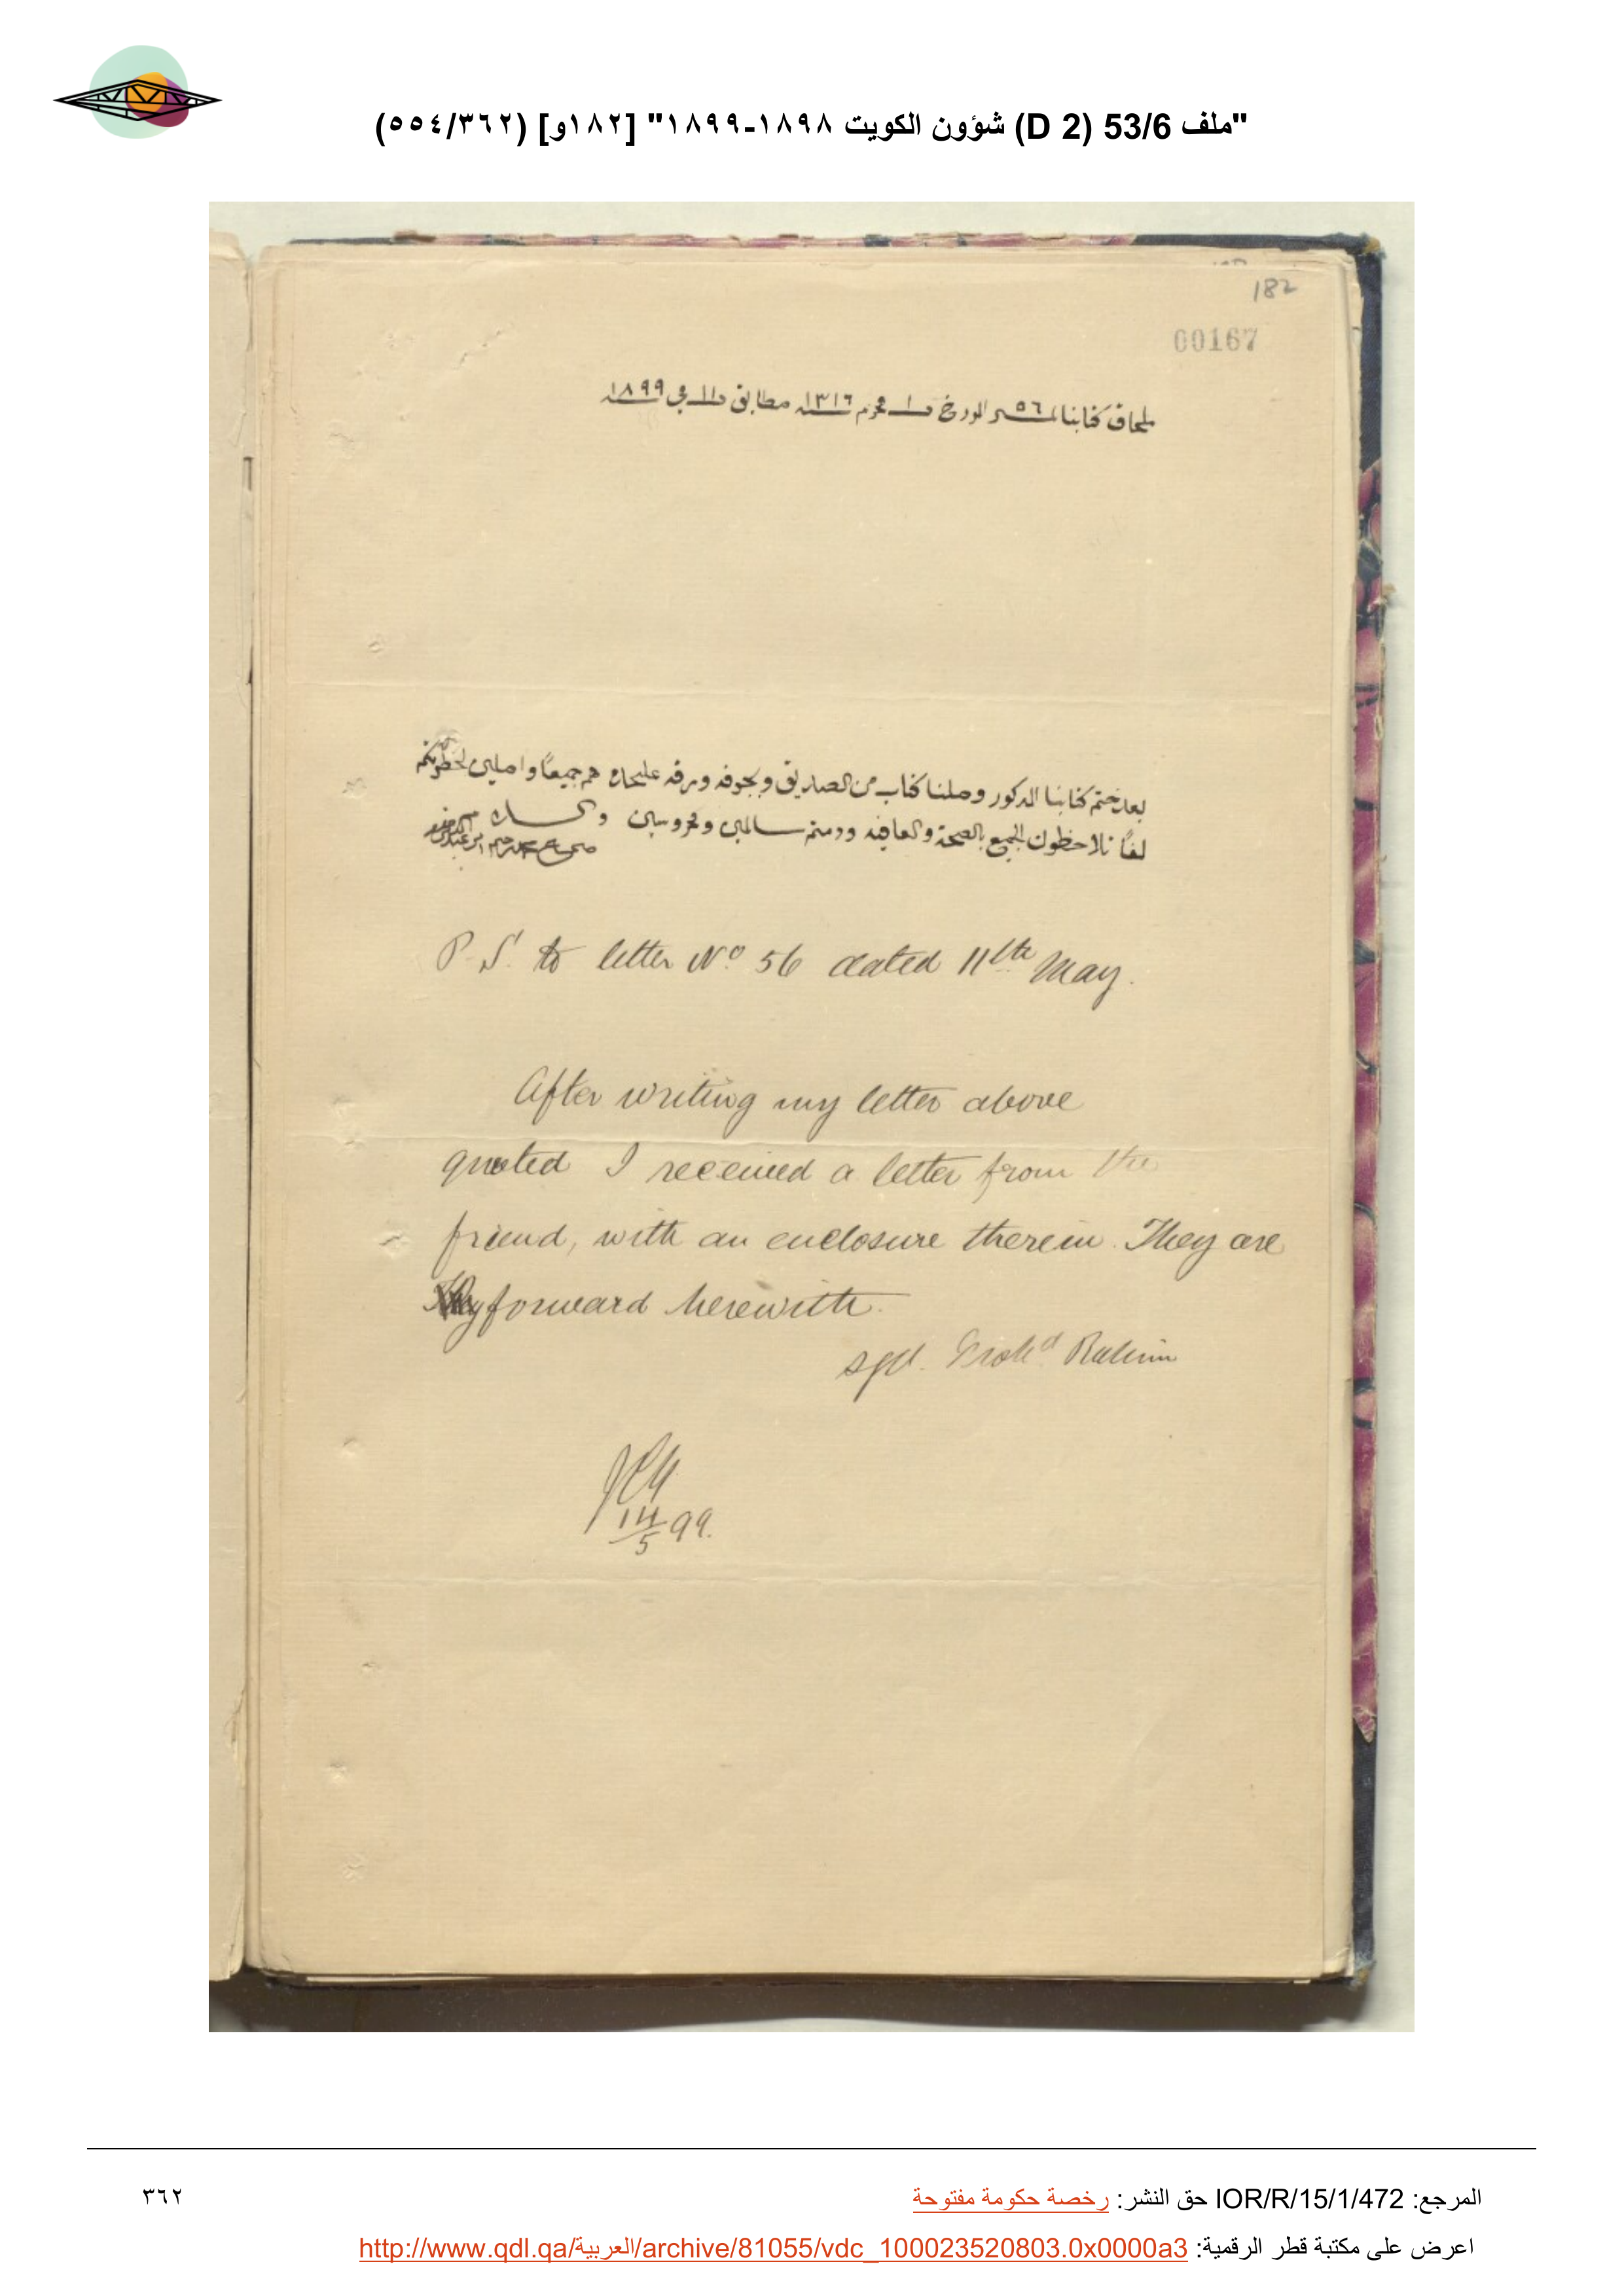 "ملف 53/6 (D 2) شؤون الكويت ١٨٩٨-١٨٩٩" [١٨٢و] (٥٥٤/٣٦٢)
182
00167
ملحاق كتابنا نمبر ٥٦ المورخ ١٠ محرم ١٣١٦ مطابق ١١ مي ١٨٩٩
بعد ختم كتابنا المذكور وصلنا كتاب من الصديق وبجوفه ورقه هم جميعًا واصلين لحضرتكم
لفًا تلاحظون الجميع بالصحة والعافيه ودمتم سالمين ومحروسين والسلام
P.S. to letter Nº 56 dated 11th May.
After writing my letter above
quoted I received a letter from the
friend, with an enclosure therein. They are
forward herewith.
sgd. Mohd. Rahim
14/5 99.
المرجع: IOR/R/15/1/472 حق النشر: رخصة حكومة مفتوحة
٣٦٢
اعرض على مكتبة قطر الرقمية: http://www.qdl.qa/العربية/archive/81055/vdc_100023520803.0x0000a3